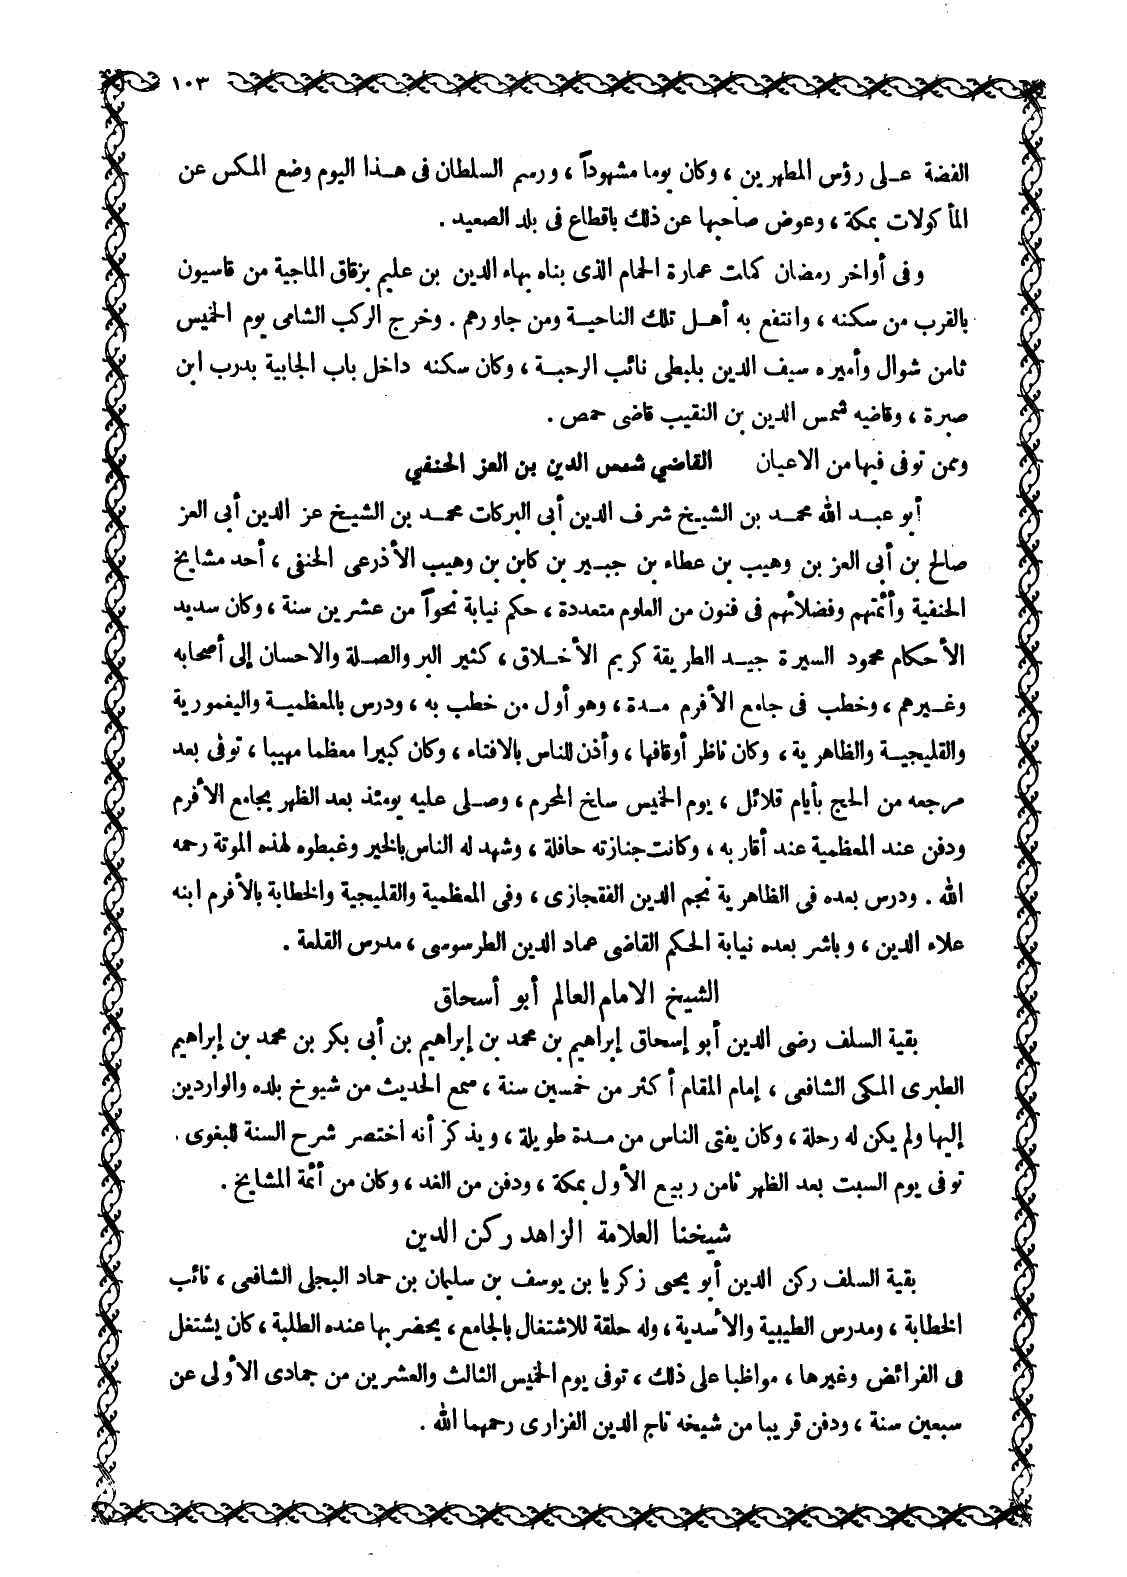 ١٠٣
الفضة على رؤس المطهرين، وكان يوما مشهوداً، ورسم السلطان فى هذا اليوم وضع المكس عن
المأكولات بمكة، وعوض صاحبها عن ذلك باقطاع فى بلد الصعيد.
وفى أواخر رمضان كملت عمارة الحمام الذى بناه بهاء الدين بن عليم بزقاق الماجية من قاسيون
بالقرب من سكنه، وانتفع به أهل تلك الناحية ومن جاورهم. وخرج الركب الشامى يوم الخميس
ثامن شوال وأميره سيف الدين بلبطى نائب الرحبة، وكان سكنه داخل باب الجابية بدرب ابن
صبرة، وقاضيه شمس الدين بن النقيب قاضى حمص.
وممن توفى فيها من الاعيان القاضي شمس الدين بن العز الحنفي
أبو عبد الله محمد بن الشيخ شرف الدين أبى البركات محمد بن الشيخ عز الدين أبى العز
صالح بن أبى العز بن وهيب بن عطاء بن جبير بن كابن بن وهيب الأذرعى الحنفى، أحد مشايخ
الحنفية وأئمتهم وفضلائهم فى فنون من العلوم متعددة، حكم نيابة نحواً من عشرين سنة، وكان سديد
الأحكام محمود السيرة جيد الطريقة كريم الأخلاق، كثير البر والصلة والاحسان إلى أصحابه
وغيرهم، وخطب فى جامع الأفرم مدة، وهو أول من خطب به، ودرس بالمعظمية واليغمورية
والقليجية والظاهرية، وكان ناظر أوقافها، وأذن للناس بالافتاء، وكان كبيرا معظما مهيبا، توفى بعد
مرجعه من الحج بأيام قلائل، يوم الخميس سلخ المحرم، وصلى عليه يومئذ بعد الظهر بجامع الأفرم
ودفن عند المعظمية عند أقاربه، وكانت جنازته حافلة، وشهد له الناس بالخير وغبطوه لهذه الموتة رحمه
الله. ودرس بعده فى الظاهرية نجم الدين الفقجازى، وفى المعظمية والقليجية والخطابة بالأفرم ابنه
علاء الدين، وباشر بعده نيابة الحكم القاضى عماد الدين الطرسوسى، مدرس القلعة.
الشيخ الامام العالم أبو أسحاق
بقية السلف رضى الدين أبو إسحاق إبراهيم بن محمد بن إبراهيم بن أبى بكر بن محمد بن إبراهيم
الطبرى المكى الشافعى، إمام المقام أكثر من خمسين سنة، سمع الحديث من شيوخ بلده والواردين
إليها ولم يكن له رحلة، وكان يفتى الناس من مدة طويلة، ويذكر أنه اختصر شرح السنة للبغوى.
توفى يوم السبت بعد الظهر ثامن ربيع الأول بمكة، ودفن من الغد، وكان من أئمة المشايخ.
شيخنا العلامة الزاهد ركن الدين
بقية السلف ركن الدين أبو يحيى زكريا بن يوسف بن سليمان بن حماد البجلى الشافعى، نائب
الخطابة، ومدرس الطيبية والأسدية، وله حلقة للاشتغال بالجامع، يحضر بها عنده الطلبة، كان يشتغل
فى الفرائض وغيرها، مواظبا على ذلك، توفى يوم الخميس الثالث والعشرين من جمادى الأولى عن
سبعين سنة، ودفن قريبا من شيخه تاج الدين الفزارى رحمهما الله.